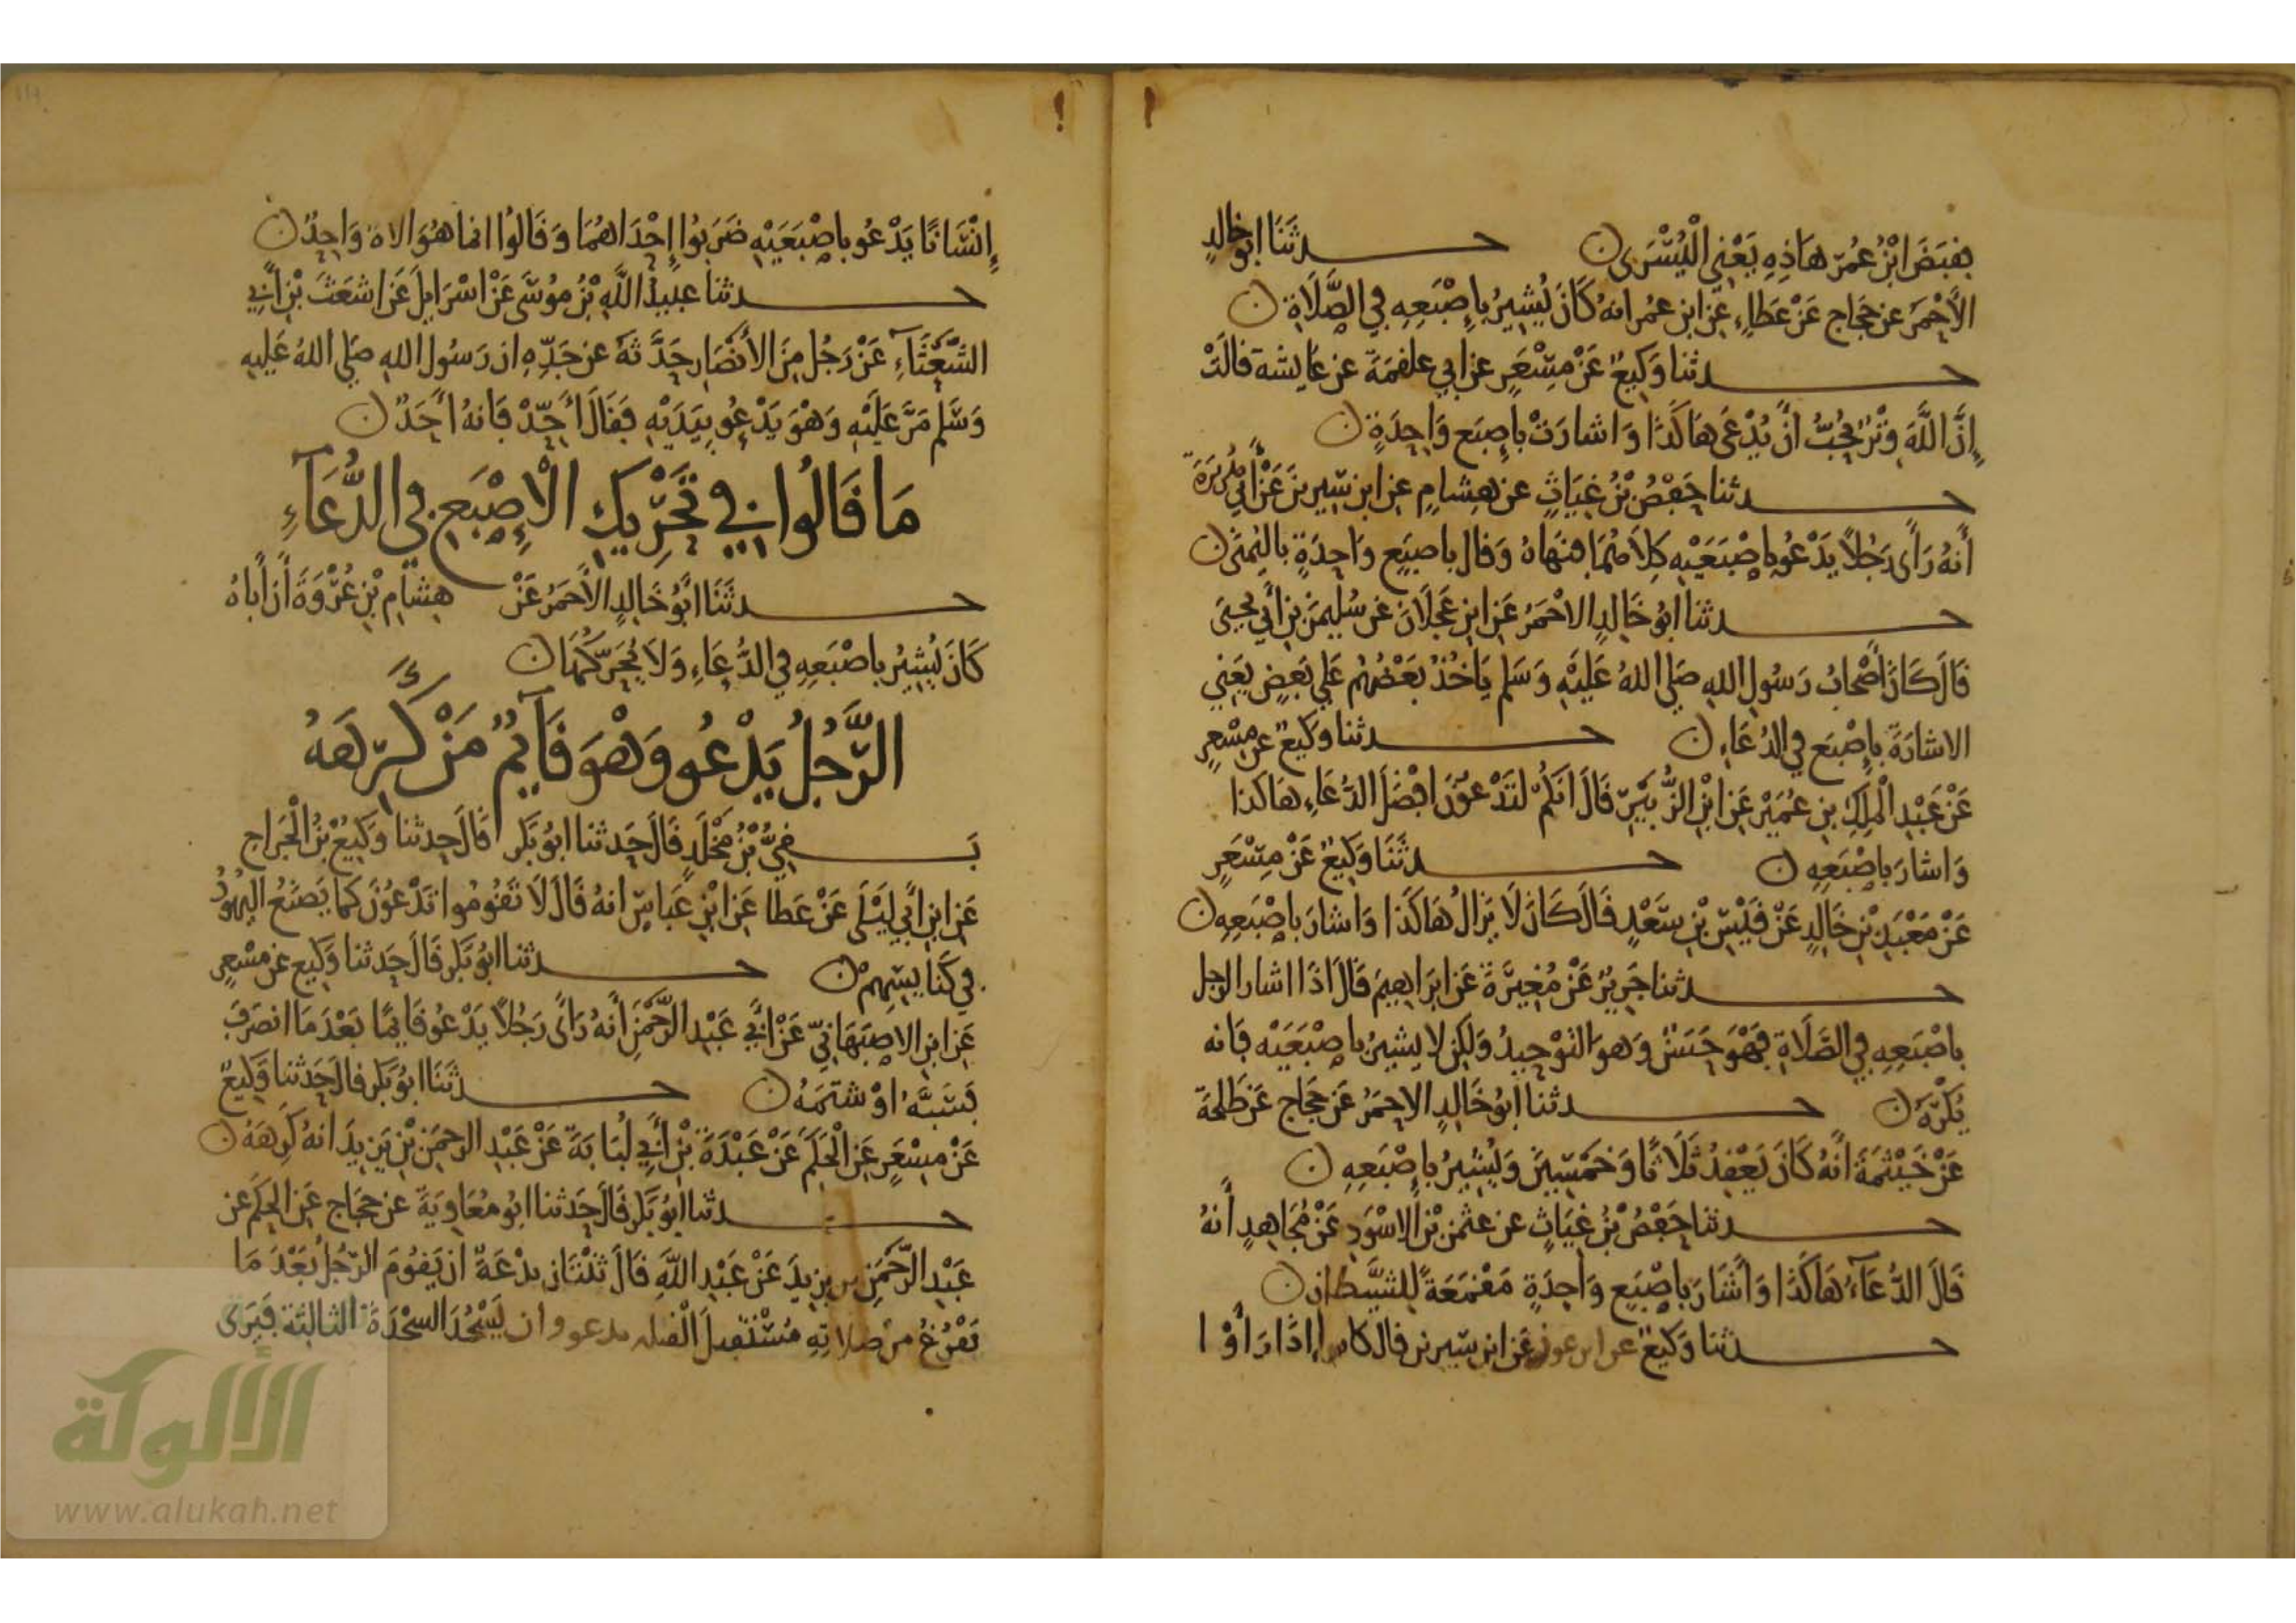 فقبض ابْنُ عُمَر هَاذِهِ يَعْنِي الْيُسْرَى ن حدثَنَا ابو خالدٍ
الأحْمَر عن حَجاج عَنْ عَطاءٍ عَن ابن عُمر انه كَانَ يُشِيرُ بِإصْبَعِهِ فِي الصَّلَاةِ ن
حدثنا وَكِيعٌ عَنْ مِسْعَرٍ عن ابي علقمَةَ عن عَايشة قالَتْ
إنَّ اللَّهَ وِتْرٌ يُحِبُّ أنْ يُدْعَى هَاكَذَا وَاشارَتْ بِإصبَع وَاحِدَةٍ ن
حدثنا حَفْصُ بْنُ غِيَاثٍ عن هِشامٍ عن ابن سِيرينَ عَنْ أبِي هُرَيْرَةَ
أنهُ رَأى رَجُلاً يَدْعُو بِاصْبَعَيْهِ كِلاهُمَا فنَهَاهُ وَقال باصبَعٍ وَاحِدَةٍ بالْيُمنَى ن
حدثنا ابُو خَالِدٍ الاحْمَرُ عَن ابنِ عَجْلَانَ عَن سُليمَنَ بنِ أبي يحيَى
قَالَ كَانَ أَصْحَابُ رَسُولِ اللهِ صَلى اللهُ عَليْهِ وَسَلم يَاخُذُ بَعْضُهُم عَلى بَعضٍ يَعْنِي
الاشارَةَ بِإصْبَعٍ فِي الدُّعَاءِ ن حدثنا وَكيعٌ عن مِسْعرٍ
عَنْ عَبْدِ الْمَلِكِ بن عُمَيْرٍ عَنِ ابْنِ الزُّبَيْرِ قَالَ انَكُمْ لتَدْعُوْنَ افْضَلَ الدُّعَاءِ هَاكذا
وَاشارَ بِاصْبَعِهِ ن حدثَنَا وَكِيعٌ عَنْ مِسْعَرٍ
عَنْ مَعْبَدِ بْنِ خَالِدٍ عَنْ قَيْسِ بْنِ سَعْدٍ قَالَ كَانَ لَا يَزالُ هَاكَذا وَاشارَ بِاصْبَعِهِ ن
حدثنا جَرِيرٌ عَنْ مُغِيرَةَ عَن ابرَاهِيمَ قَالَ اذَا اشارَ الرجل
بِاصْبَعِهِ فِي الصَّلَاةِ فَهْوَ حَسَنٌ وَهوَ التوْحِيدُ وَلَكِن لا يشيرُ باصْبَعَيْهِ فَانه
يُكْرَهُ ن حدثنا ابُو خَالِدٍ الاحمَرُ عَن حَجَّاجٍ عَن طَلحَةَ
عَنْ خَيْثَمَةَ أنَّهُ كَانَ يَعْقِدُ ثَلَاثًا وَخَمْسِينَ وَيُشِيرُ بِإصْبَعِهِ ن
حدثنا حَفْصُ بْنُ غِيَاثٍ عن عثمَن بْنِ الاسْوَدِ عَنْ مُجَاهِدٍ أنهُ
قَالَ الدُّعَآءُ هَاكَذَا وَأشَارَ بِاصْبَعٍ وَاحِدَةٍ مَقْمَعَةً لِلشَّيْطانِ ن
حدثنا وَكيعٌ عن ابن عون عَن ابن سِيرين قال كانوا إذَا رَأَوْا
إنْسَانًا يَدْعُو بِاصْبَعَيْهِ ضَرَبُوا إحْدَاهُمَا وَقَالوُا انمَا هُوَ الاهٌ وَاحِدٌ ن
حدثنا عبيدُ اللَّهِ بْنُ مُوسَى عَنْ اسْرَايِلَ عَن اشعَثَ بْنِ أبِي
الشَّعْثَآءِ عَنْ رَجُلٍ مِنَ الأنْصَارِ حَدَّثهُ عن جَدِّهِ ان رَسُولَ اللهِ صَلى اللهُ عَليهِ
وَسَلم مَرَّ عَلَيْهِ وَهْوَ يَدْعُو بِيَدَيْهِ فَقَالَ أحِّدْ فَانهُ أحَدٌ ن
مَا قَالُوا فِي تَحْرِيكِ الْإصْبَعِ فِي الدُّعَآءِ
حدثَنَا ابُو خَالِدٍ الأحمَرُ عَنْ هِشامِ بْنِ عُرْوَةَ أنَ أبَاهُ
كَانَ يُشِيرُ باصْبَعِهِ فِي الدُّعَاءِ وَلَا يُحَرِّكُهَا ن
الرَّجُلُ يَدْعُو وَهْوَ قَآيِمٌ مَنْ كَرِهَهُ
بَقِيُّ بْنُ مَخْلَدٍ قَالَ حَدثنا ابوُ بَكر قَالَ حدثنا وَكِيعُ بْنُ الْجَراحِ
عَنِ ابنِ أبِي لَيْلَى عَنْ عَطا عَنِ ابْنِ عَباسٍ انهُ قَالَ لَا تَقُومُوا تدْعُونَ كمَا يَصنَعُ اليَهُودُ
فِي كَنَايِسِهِمْ ن حدثنا ابُو بَكر قَالَ حَدثنا وَكِيع عن مِسْعرٍ
عَنِ ابنِ الاصبَهَانِيِّ عَنْ أبِي عَبْدِ الرَّحْمَنِ أنهُ رَأى رَجُلاً يَدْعُو قَايمًا بَعْدَمَا انصَرَفَ
فَسَبَّهُ اوْ شتَمَهُ ن حدثَنَا ابوُ بَكر قالَ حَدثنا وَكِيعٌ
عَنْ مِسْعَرٍ عَنِ الْحَكَمِ عَنْ عَبْدَةَ بْنِ أبِي لُبَابَةَ عَنْ عَبْدِ الرحمَنِ بْنِ يَزيدَ انهُ كَرِهَهُ ن
حدثنا ابوُ بَكر قَالَ حَدثنا ابُو مُعَاوِيَةَ عن حجَاجٍ عَنِ الحَكَم عن
عَبْدِ الرَّحْمَنِ بن يزيدَ عَنْ عَبْدِ اللَّهِ قَالَ ثنْتَانِ بدْعَةٌ ان يَقُومَ الرَّجُلُ بَعْدَ مَا
يَفْرُغُ مِنْ صَلاتِهِ مُسْتَقْبِلَ الْقبله يدعو وان يَسْجُدَ السجْدَةَ الثالِثة فَيَرَى
الألوكة
www.alukah.net